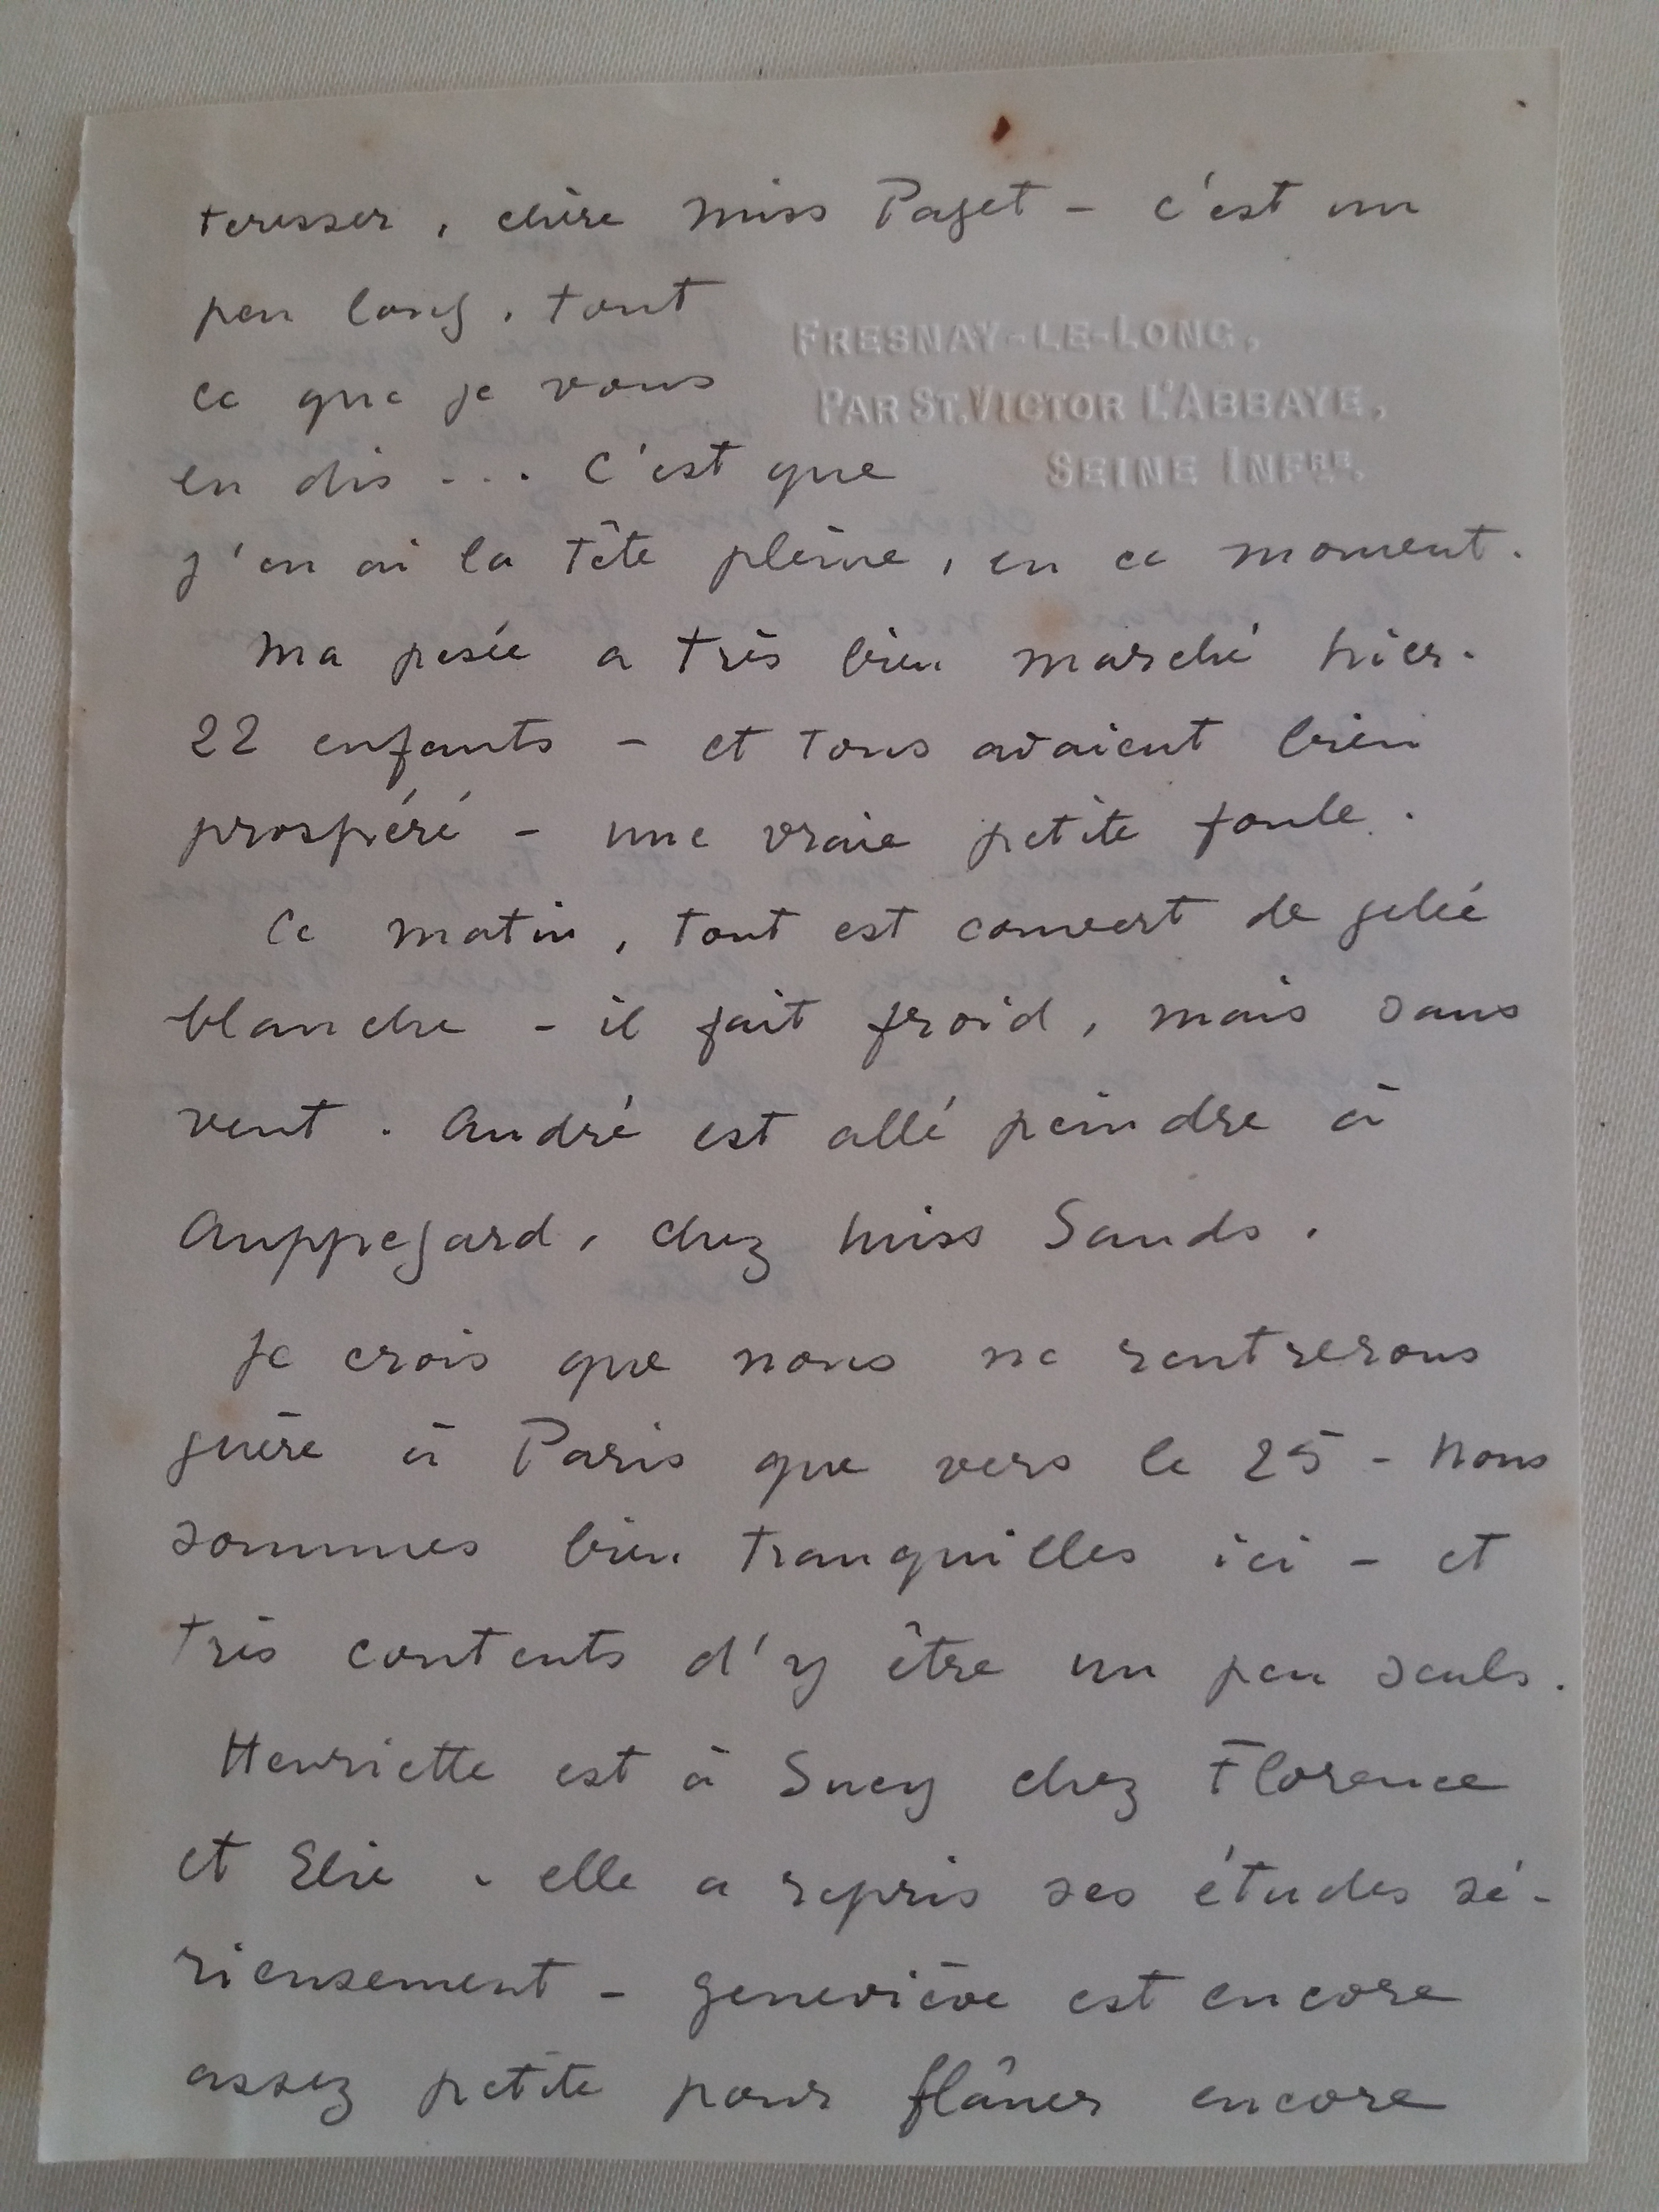 teresser, chère Miss Paget – c'est un
peu long, tout
FRESNAY-LE-LONG,
ce que je vous
PAR ST. VICTOR L'ABBAYE,
en dis ... C'est que
SEINE INFRE.
j'en ai la tête pleine, en ce moment.
Ma pesée a très bien marché hier.
22 enfants – et tous avaient bien
prospéré – une vraie petite foule.
Ce matin, tout est couvert de gelée
blanche – il fait froid, mais sans
vent. André est allé peindre à
Auppegard, chez Miss Sands.
Je crois que nous ne rentrerons
guère à Paris que vers le 25 – Nous
sommes bien tranquilles ici – et
très contents d'y être un peu seuls.
Henriette est à Sucy chez Florence
et Elie - elle a repris ses études sé-
rieusement – Geneviève est encore
assez petite pour flâner encore